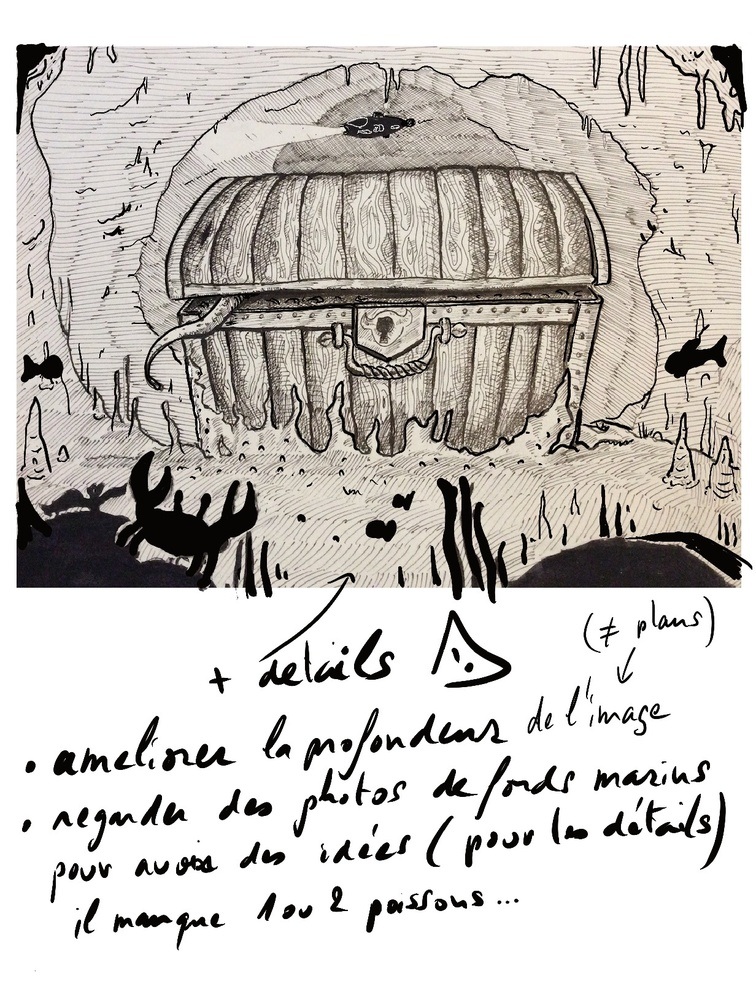 (≠ plans)
+ détails
• ameliorer la profondeur de l'image
• regarder des photos de fonds marins
pour avoir des idées (pour les détails)
il manque 1 ou 2 poissons...